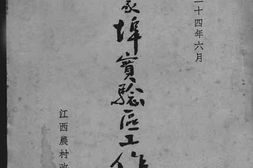 二十四年六月
家埠實驗區工作
江西農村改